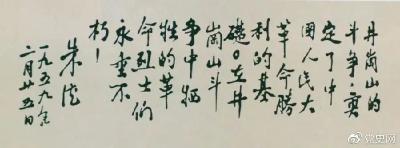 井崗山的
斗争，奠
定了中
國人民大
革命勝
利的基
礎。在井
崗山斗
争中牺
牲的革
命烈士們
永垂不
朽！
朱德
一九五九年
二月廿五日
@党史网